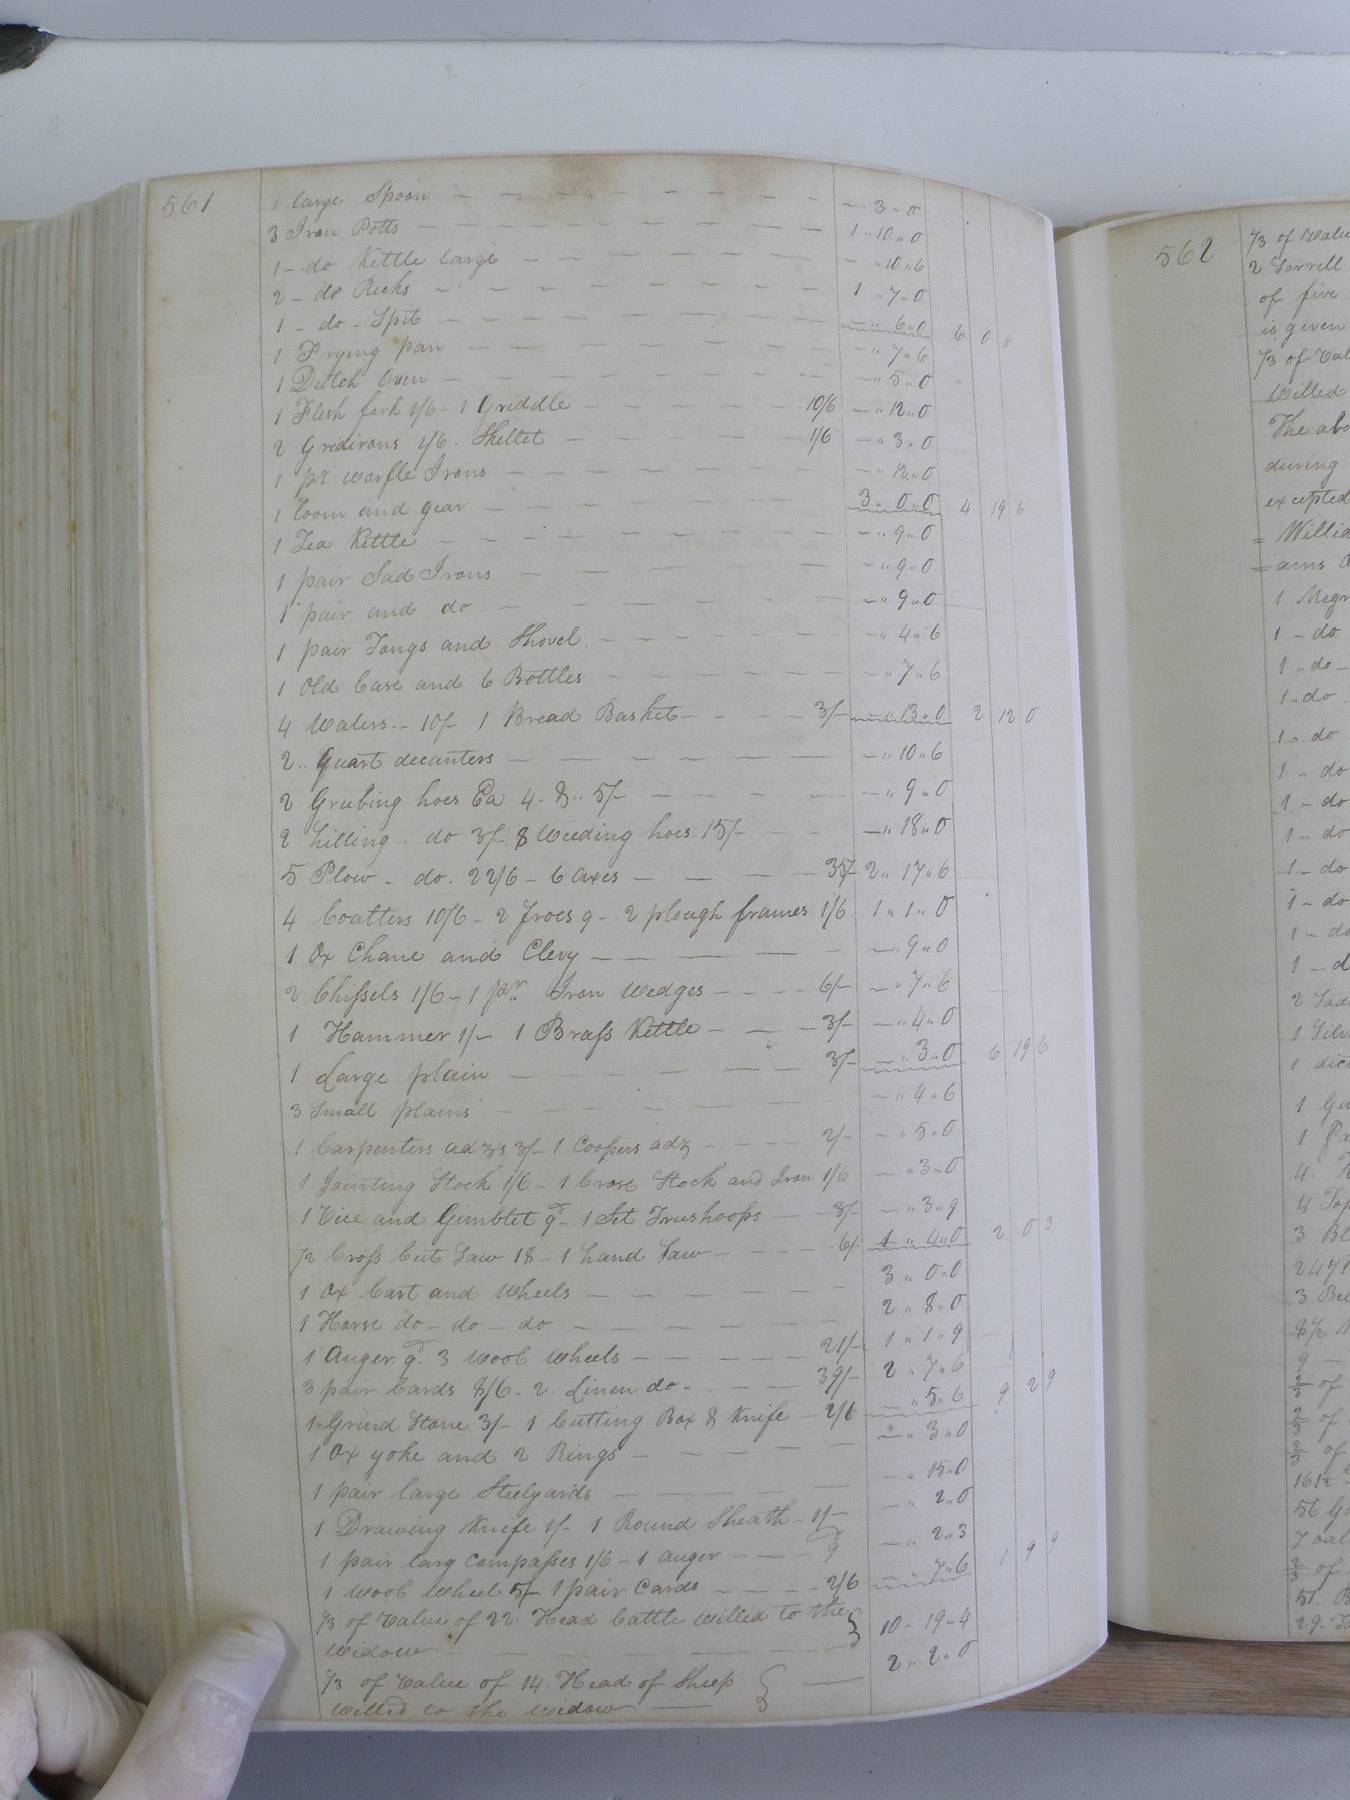 561
1 large Spoon — — — — — — — — " 3 " 0
3 Iron Potts — — — — — — — 1 " 10 " 0
1 — do Kettle large — — — — — — " 10 " 6
2 — do Racks — — — — — — — 1 " 7 " 0
1 — do — Spit — — — — — — — " 6 " 0 6 0 6
1 Frying pan — — — — — — — " 7 " 6
1 Dutch Oven — — — — — — — " 5 " 0
1 Flesh fork 1/6 — 1 Griddle — — — — 10/6 — " 12 " 0
2 Gridirons 1/6 . Skillet — — — — 1/6 — " 3 " 0
1 pr. warfle Irons — — — — — — " 12 " 0
1 loom and gear — — — 3 " 0 " 0 4 19 6
1 Tea Kettle — — — — — — — " 9 " 0
1 pair Sad Irons — — — — — " 9 " 0
1 pair and do — — — — — " 9 " 0
1 pair Tongs and Shovel — — — — " 4 " 6
1 Old Case and 6 Bottles — — — — " 7 " 6
4 Waters — 10/- 1 Bread Basket — — — 3/- — " 13 " 0 2 12 0
2 .. Quart decanters — — — — — — " 10 " 6
2 Grubing hoes Ea 4 - 8 .. 5/- — — — — " 9 " 0
2 hilling .. do 3/- 8 Weeding hoes 15/- — — — " 18 " 0
5 Plow - do . 22/6 — 6 axes — — — — 35/- 2 " 17 " 6
4 Coatters 10/6 — 2 froes 9 — 2 plough frames 1/6 1 " 1 " 0
1 Ox Chane and Clevy — — — — — " 9 " 0
2 Chissels 1/6 — 1 pr. Iron Wedges — — — 6/- — " 7 " 6
1 Hammer 1/- 1 Brass Kettle — — — 3/- — " 4 " 0
1 Large plain — — — — — — 3/- — " 3 " 0 6 19 6
3 Small plains — — — — — — " 4 " 6
1 Carpenters adzs 3/- 1 Coopers adz — — — — 2/- — " 5 " 0
1 Jointing Stock 1/6 — 1 Crose Stock and Iron 1/6 — " 3 " 0
1 Vice and Gimblet 9d — 1 Set Trushoops — — 3/- — " 3 " 9
1/2 Cross Cut Saw 18 — 1 hand Saw — — — — 6/- 1 " 4 " 0 2 0 3
1 Ox Cart and Wheels — — — — — 3 " 0 " 0
1 Horse do — do — do — — — — — 2 " 8 " 0
1 Auger 9d. 3 wool wheels — — — — 21/- 1 " 1 " 9
3 pair Cards 8/6 - 2. Linen do — — — 39/- 2 " 7 " 6
1 Grind Stone 3/- 1 Cutting Box & Knife — 2/6 — " 5 " 6 9 2 9
1 Ox yoke and 2 Rings — — — — " 3 " 0
1 pair large Steelyards — — — — — " 15 " 0
1 Drawing Knife 1/- 1 Round Sheath — 1/- — " 2 " 0
1 pair larg Compasses 1/6 — 1 auger — — — 9d — " 2 " 3
1 wool Wheel 5/- 1 pair Cards — — — — 2/6 — " 7 " 6 1 9 9
1/3 of Value of 22 Head Cattle willed to the
widow — — — — — — 10 " 19 " 4
1/3 of Value of 14 Head of Sheep — 2 " 2 " 0
willed to the widow —
562
1/3 of
2
of five
is given
1/3 of
Willed
The
during
excepted
=
=
1
1 — do
1 .. do —
1 .. do
1 .. do
1 .. do
1 — do
1 .. do
1 — do
1 — do
1 —
1 —
2
1
1
1
1
4.
4
3
247
3
8 1/2
9 —
2/3 of
2/3 of
2/3 of
161
56
7
2/3 of
51.
29.